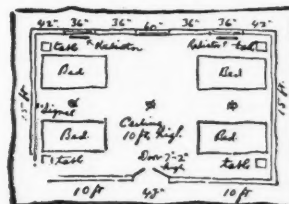 42" 36" 36" 60" 36" 36" 42"
table Radiator Radiator table
Bed Bed
15 ft 15 ft
Signal
Bed Ceiling 10 ft. high Bed
table Door 7'-2" high table
10 ft 48" 10 ft